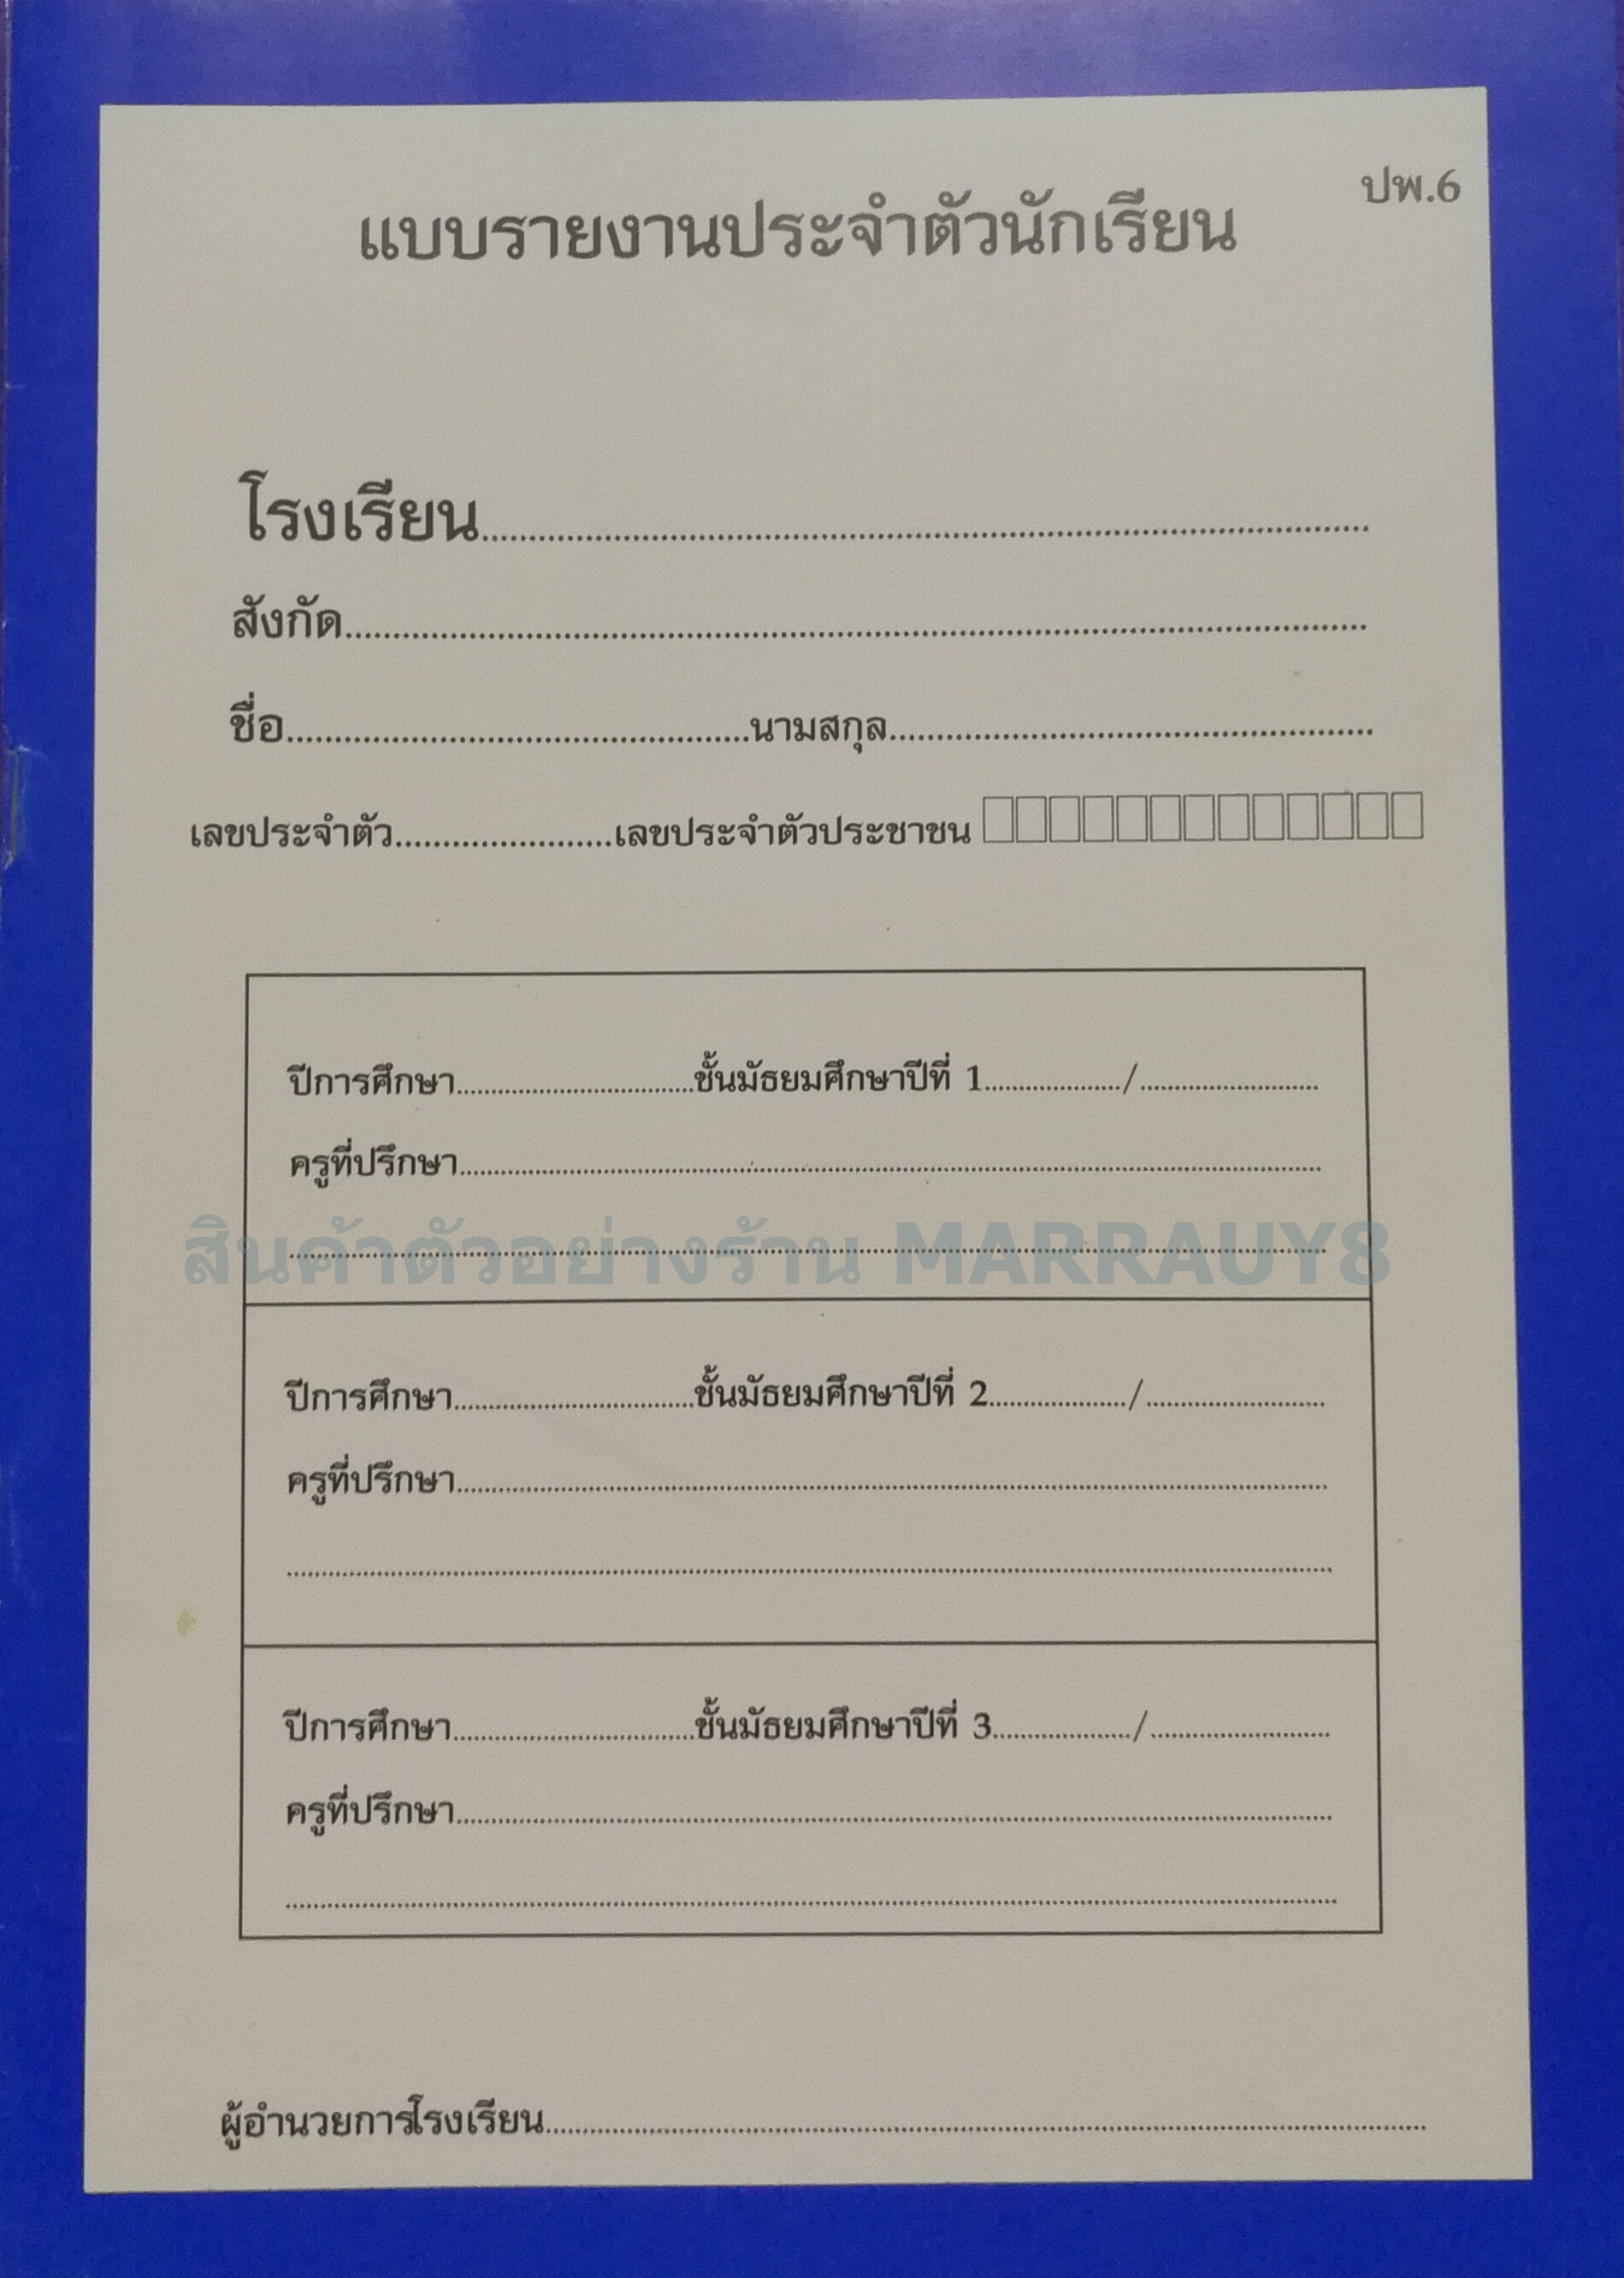 ปพ.6
แบบรายงานประจำตัวนักเรียน
โรงเรียน........................................................................
สังกัด........................................................................
ชื่อ........................................นามสกุล........................................
เลขประจำตัว......................เลขประจำตัวประชาชน
ปีการศึกษา..............................ชั้นมัธยมศึกษาปีที่ 1..................../..........................
ครูที่ปรึกษา........................................................................
สินค้าตัวอย่างร้าน MARRAUY8
ปีการศึกษา..............................ชั้นมัธยมศึกษาปีที่ 2..................../..........................
ครูที่ปรึกษา........................................................................
........................................................................
ปีการศึกษา..............................ชั้นมัธยมศึกษาปีที่ 3..................../..........................
ครูที่ปรึกษา........................................................................
........................................................................
ผู้อำนวยการโรงเรียน........................................................................